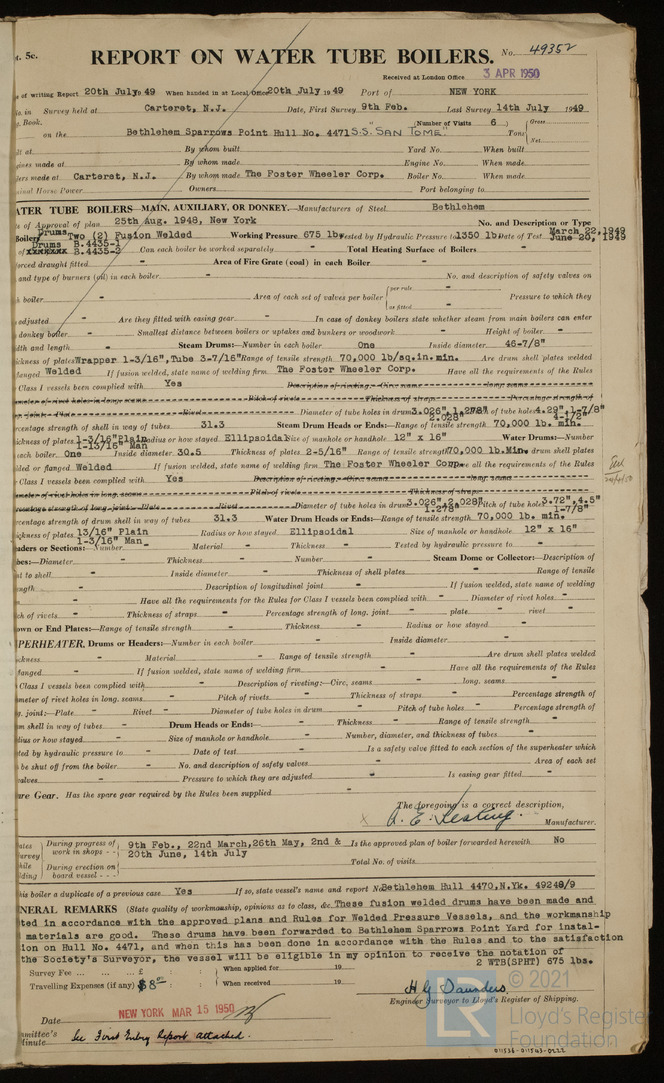 t. 5c. REPORT ON WATER TUBE BOILERS. No. 49352
Received at London Office 3 APR 1950
of writing Report 20th July 1949 When handed in at Local Office 20th July 1949 Port of NEW YORK
in Survey held at Carteret, N.J. Date, First Survey 9th Feb. Last Survey 14th July 1949
Book. (Number of Visits 6) Gross
on the Bethlehem Sparrows Point Hull No. 4471 S.S. "SAN TOME" Tons Net
lt at By whom built Yard No. When built
gines made at By whom made Engine No. When made
lers made at Carteret, N.J. By whom made The Foster Wheeler Corp. Boiler No. When made
minal Horse Power Owners Port belonging to
ATER TUBE BOILERS—MAIN, AUXILIARY, OR DONKEY.—Manufacturers of Steel Bethlehem
of Approval of plan 25th Aug. 1948, New York No. and Description or Type
Boilers Drums Two (2) Fusion Welded Working Pressure 675 lb. Tested by Hydraulic Pressure to 1350 lb. Date of Test March 22, 1949 June 20, 1949
of Drums B.4435-1 B.4435-2 Can each boiler be worked separately - Total Heating Surface of Boilers -
forced draught fitted - Area of Fire Grate (coal) in each Boiler -
and type of burners (oil) in each boiler - No. and description of safety valves on
h boiler - Area of each set of valves per boiler per rule - as fitted - Pressure to which they
adjusted - Are they fitted with easing gear - In case of donkey boilers state whether steam from main boilers can enter
donkey boiler - Smallest distance between boilers or uptakes and bunkers or woodwork - Height of boiler -
idth and length - Steam Drums:—Number in each boiler One Inside diameter 46-7/8"
ickness of plates Wrapper 1-3/16", Tube 3-7/16" Range of tensile strength 70,000 lb/sq.in. min. Are drum shell plates welded
flanged Welded If fusion welded, state name of welding firm The Foster Wheeler Corp. Have all the requirements of the Rules
Class I vessels been complied with Yes Description of riveting:—Circ. seams long. seams
ameter of rivet holes in long. seams Pitch of rivets Thickness of straps Percentage strength of
ng. joint:—Plate Rivet Diameter of tube holes in drum 3.026", 1.278" 2.028" Pitch of tube holes 4.29", 1-7/8" 4-1/2"
rcentage strength of shell in way of tubes 31.3 Steam Drum Heads or Ends:—Range of tensile strength 70,000 lb. min.
ickness of plates 1-3/16" Plain 1-13/16" Man Radius or how stayed Ellipsoidal Size of manhole or handhole 12" x 16" Water Drums:—Number
each boiler One Inside diameter 30.5 Thickness of plates 2-5/16" Range of tensile strength 70,000 lb. Min. Are drum shell plates
lded or flanged Welded If fusion welded, state name of welding firm The Foster Wheeler Corp. Have all the requirements of the Rules
Class I vessels been complied with Yes Description of riveting:—Circ. seams long. seams
ameter of rivet holes in long. seams Pitch of rivets Thickness of straps
rcentage strength of long. joint:—Plate Rivet Diameter of tube holes in drum 3.026", 2.028" 1.278" Pitch of tube holes 3.72", 4.5" 1-7/8"
rcentage strength of drum shell in way of tubes 31.3 Water Drum Heads or Ends:—Range of tensile strength 70,000 lb. min.
ickness of plates 13/16" Plain 1-3/16" Man Radius or how stayed Ellipsoidal Size of manhole or handhole 12" x 16"
eaders or Sections:—Number Material - Thickness - Tested by hydraulic pressure to -
bes:—Diameter - Thickness - Number - Steam Dome or Collector:—Description of
nt to shell - Inside diameter - Thickness of shell plates - Range of tensile
ength - Description of longitudinal joint - If fusion welded, state name of welding
- Have all the requirements for the Rules for Class I vessels been complied with - Diameter of rivet holes -
ch of rivets - Thickness of straps - Percentage strength of long. joint - plate - rivet -
own or End Plates:—Range of tensile strength - Thickness - Radius or how stayed -
PERHEATER, Drums or Headers:—Number in each boiler - Inside diameter -
ckness - Material - Range of tensile strength - Are drum shell plates welded
flanged - If fusion welded, state name of welding firm - Have all the requirements of the Rules
Class I vessels been complied with - Description of riveting:—Circ. seams - long. seams -
meter of rivet holes in long. seams - Pitch of rivets - Thickness of straps - Percentage strength of
g. joint:—Plate - Rivet - Diameter of tube holes in drum - Pitch of tube holes - Percentage strength of
m shell in way of tubes - Drum Heads or Ends:— Thickness - Range of tensile strength -
dius or how stayed - Size of manhole or handhole - Number, diameter, and thickness of tubes -
ted by hydraulic pressure to - Date of test - Is a safety valve fitted to each section of the superheater which
be shut off from the boiler - No. and description of safety valves - Area of each set
valves - Pressure to which they are adjusted - Is easing gear fitted -
are Gear. Has the spare gear required by the Rules been supplied -
The foregoing is a correct description,
Manufacturer.
ates During progress of work in shops - - 9th Feb., 22nd March, 26th May, 2nd & 20th June, 14th July Is the approved plan of boiler forwarded herewith No
Survey while lding During erection on board vessel - - - Total No. of visits
his boiler a duplicate of a previous case Yes If so, state vessel's name and report No. Bethlehem Hull 4470, N.Yk. 49248/9
NERAL REMARKS (State quality of workmanship, opinions as to class, &c. These fusion welded drums have been made and
ted in accordance with the approved plans and Rules for Welded Pressure Vessels, and the workmanship
materials are good. These drums have been forwarded to Bethlehem Sparrows Point Yard for instal-
ion on Hull No. 4471, and when this has been done in accordance with the Rules and to the satisfaction
the Society's Surveyor, the vessel will be eligible in my opinion to receive the notation of
2 WTB(SPHT) 675 lbs.
Survey Fee ... ... ... £ : : When applied for 19
Travelling Expenses (if any) $8 : : When received 19
H G Saunders
Engineer Surveyor to Lloyd's Register of Shipping.
Date NEW YORK MAR 15 1950
mmittee's Minute See First Entry Report attached.
© 2021
Lloyd's Register
Foundation
011536-011543-0222